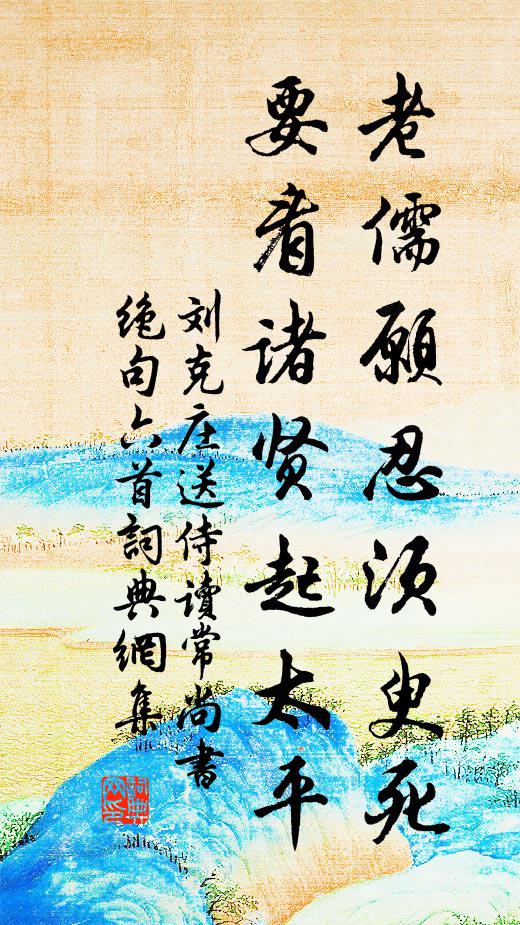 老儒願忍須臾死
要看諸贤起太平
刘克庄送侍讀常尚書
绝句六首詞典網集